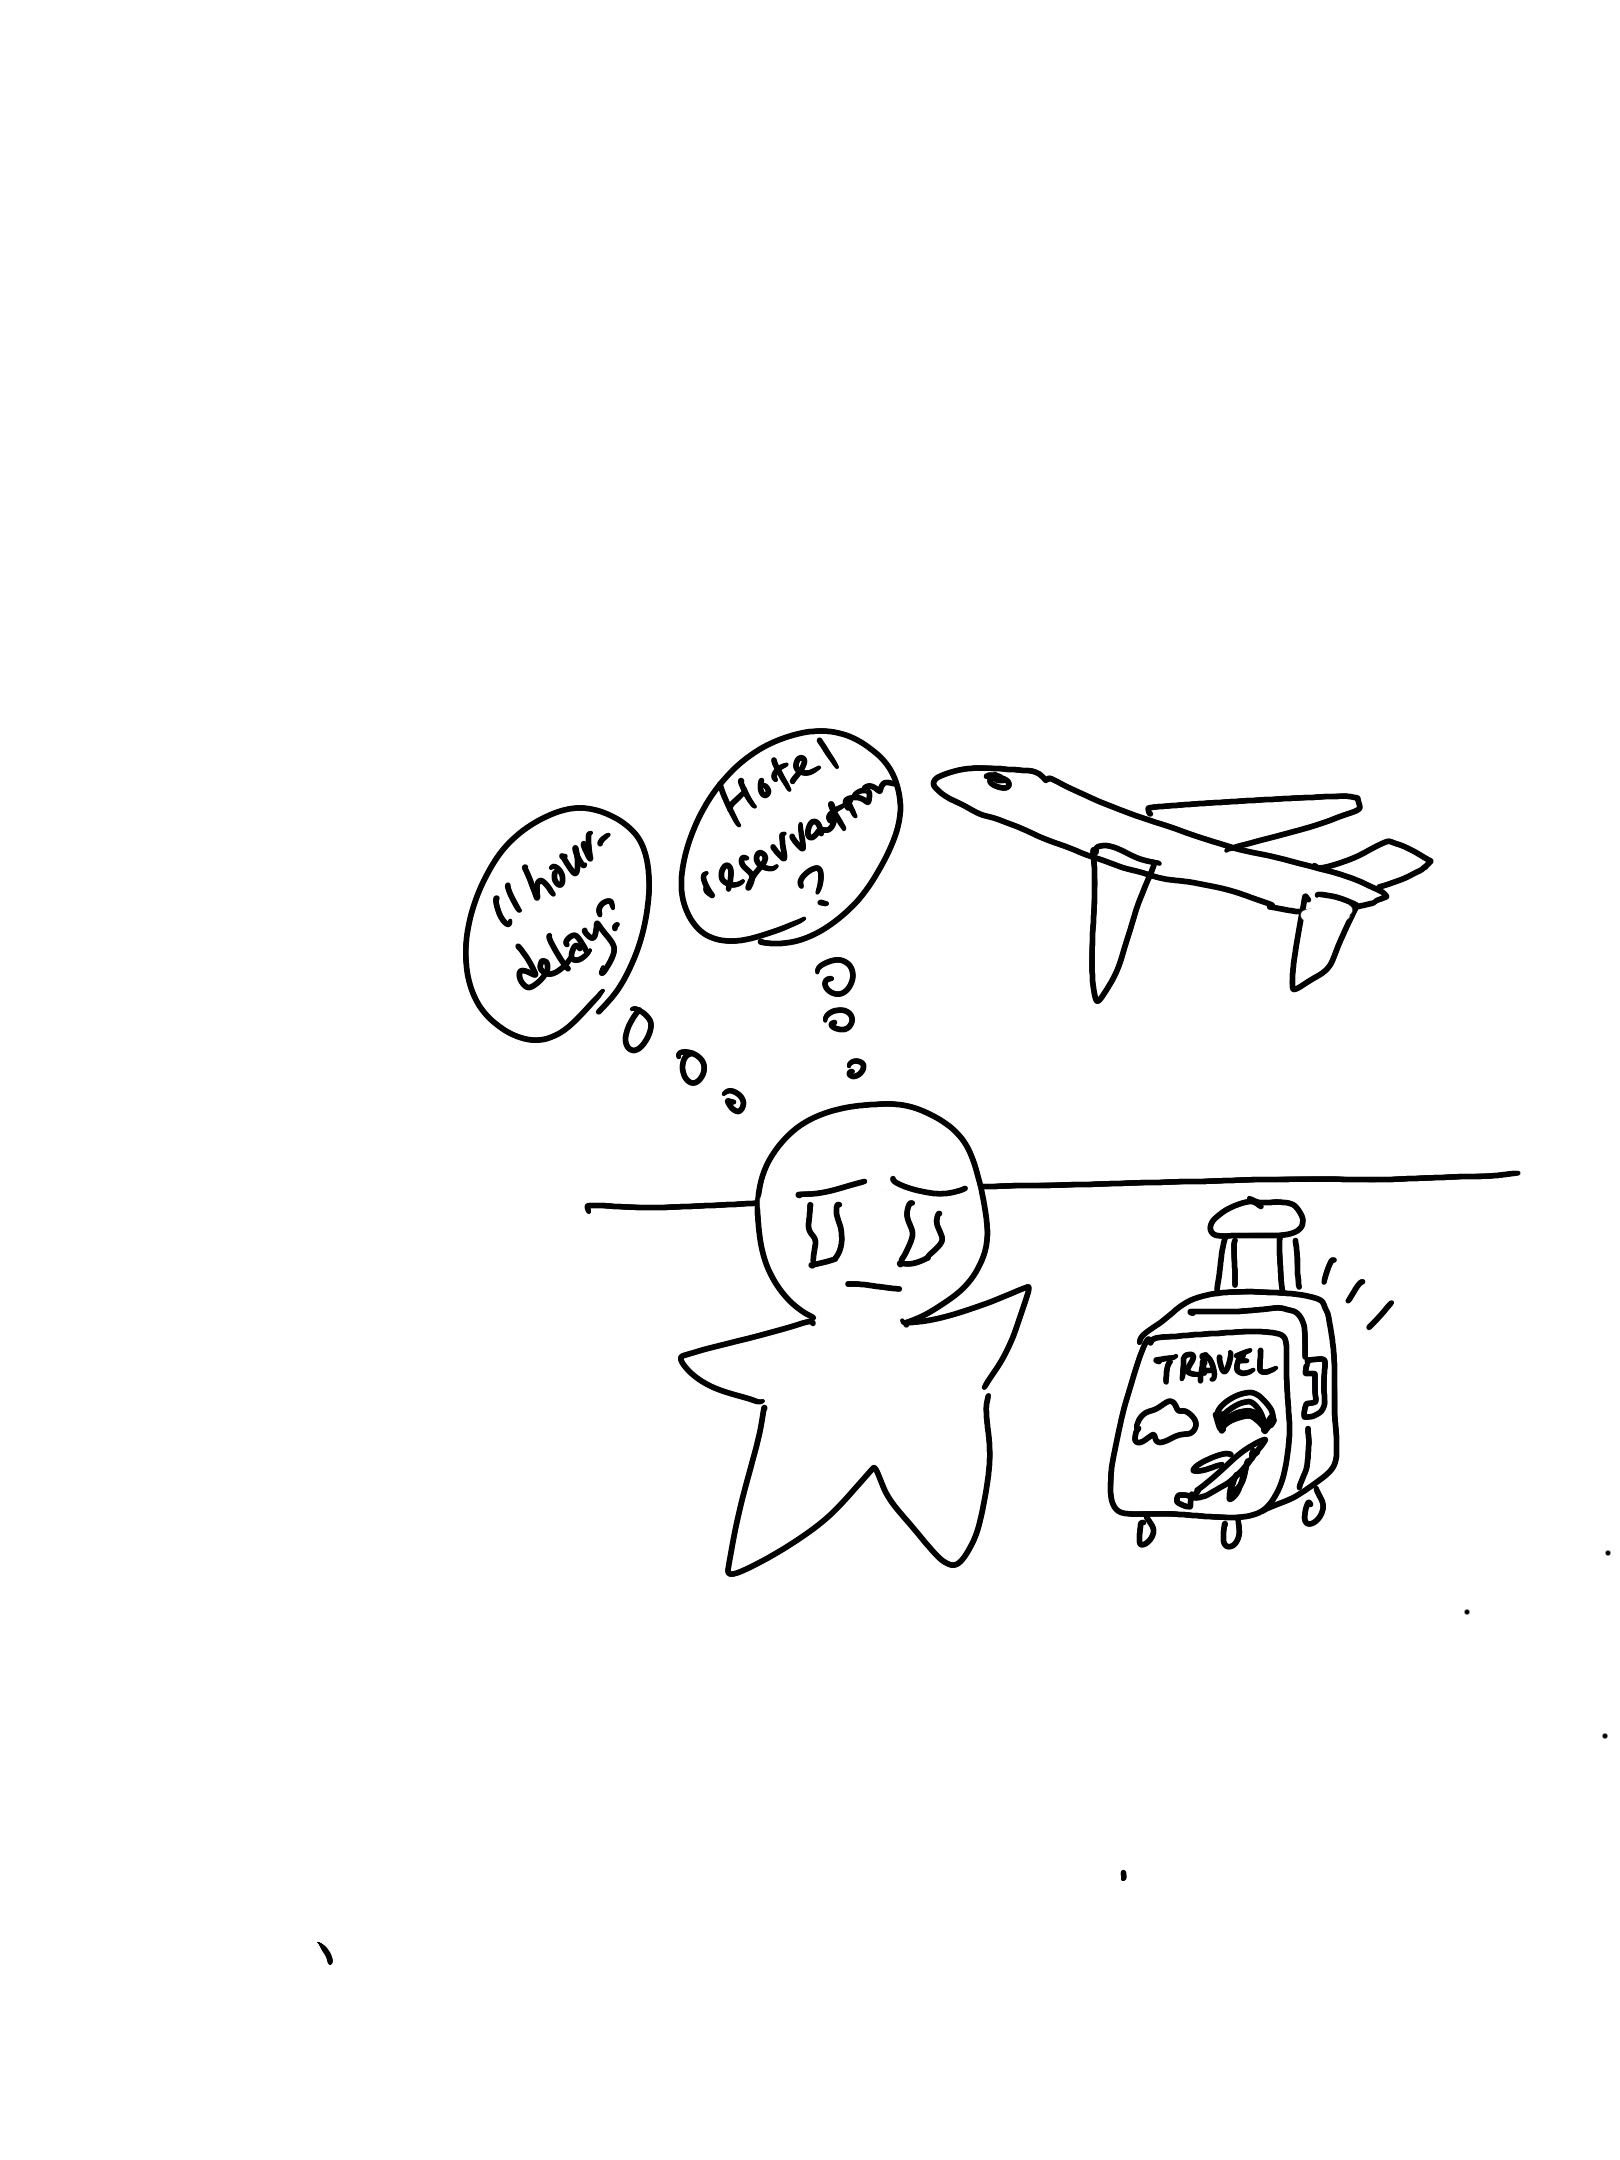 11 hour
delay?
Hotel
reservation
?
TRAVEL